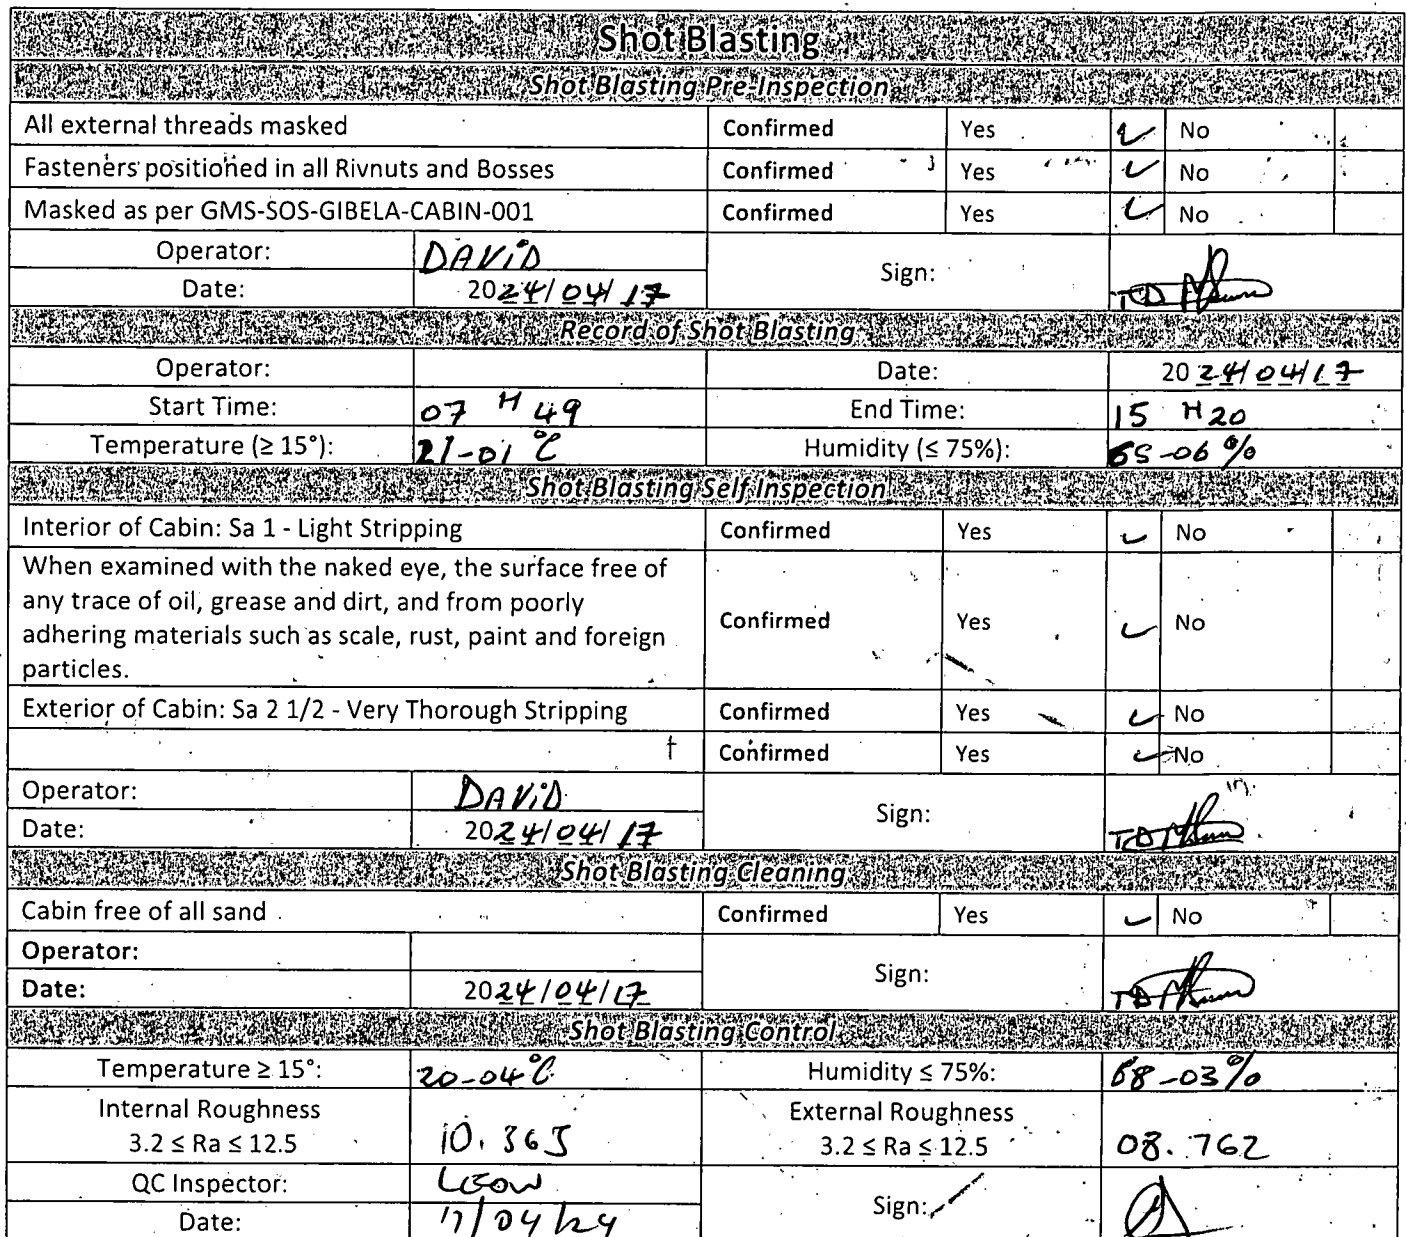 Shot Blasting
Shot Blasting Pre-Inspection
All external threads masked Confirmed Yes ✓ No
Fasteners positioned in all Rivnuts and Bosses Confirmed Yes ✓ No
Masked as per GMS-SOS-GIBELA-CABIN-001 Confirmed Yes ✓ No
Operator: DAViD Sign:
Date: 2024/04/17
Record of Shot Blasting
Operator: Date: 2024/04/17
Start Time: 07 H 49 End Time: 15 H 20
Temperature (≥ 15°): 21-01 °C Humidity (≤ 75%): 65-06 %
Shot Blasting Self Inspection
Interior of Cabin: Sa 1 - Light Stripping Confirmed Yes ✓ No
When examined with the naked eye, the surface free of
any trace of oil, grease and dirt, and from poorly
adhering materials such as scale, rust, paint and foreign
particles.
Confirmed Yes ✓ No
Exterior of Cabin: Sa 2 1/2 - Very Thorough Stripping Confirmed Yes ✓ No
Confirmed Yes ✓ No
Operator: DAViD Sign:
Date: 2024/04/17
Shot Blasting Cleaning
Cabin free of all sand Confirmed Yes ✓ No
Operator: Sign:
Date: 2024/04/17
Shot Blasting Control
Temperature ≥ 15°: 20-04°C Humidity ≤ 75%: 68-03%
Internal Roughness
3.2 ≤ Ra ≤ 12.5 10.363
External Roughness
3.2 ≤ Ra ≤ 12.5 08.762
QC Inspector: Sign:
Date: 17/04/24